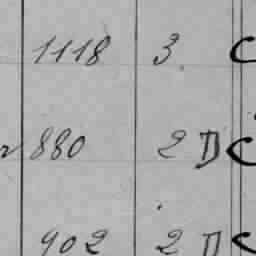 1118 3 C
880 2 D C
902 2 D C